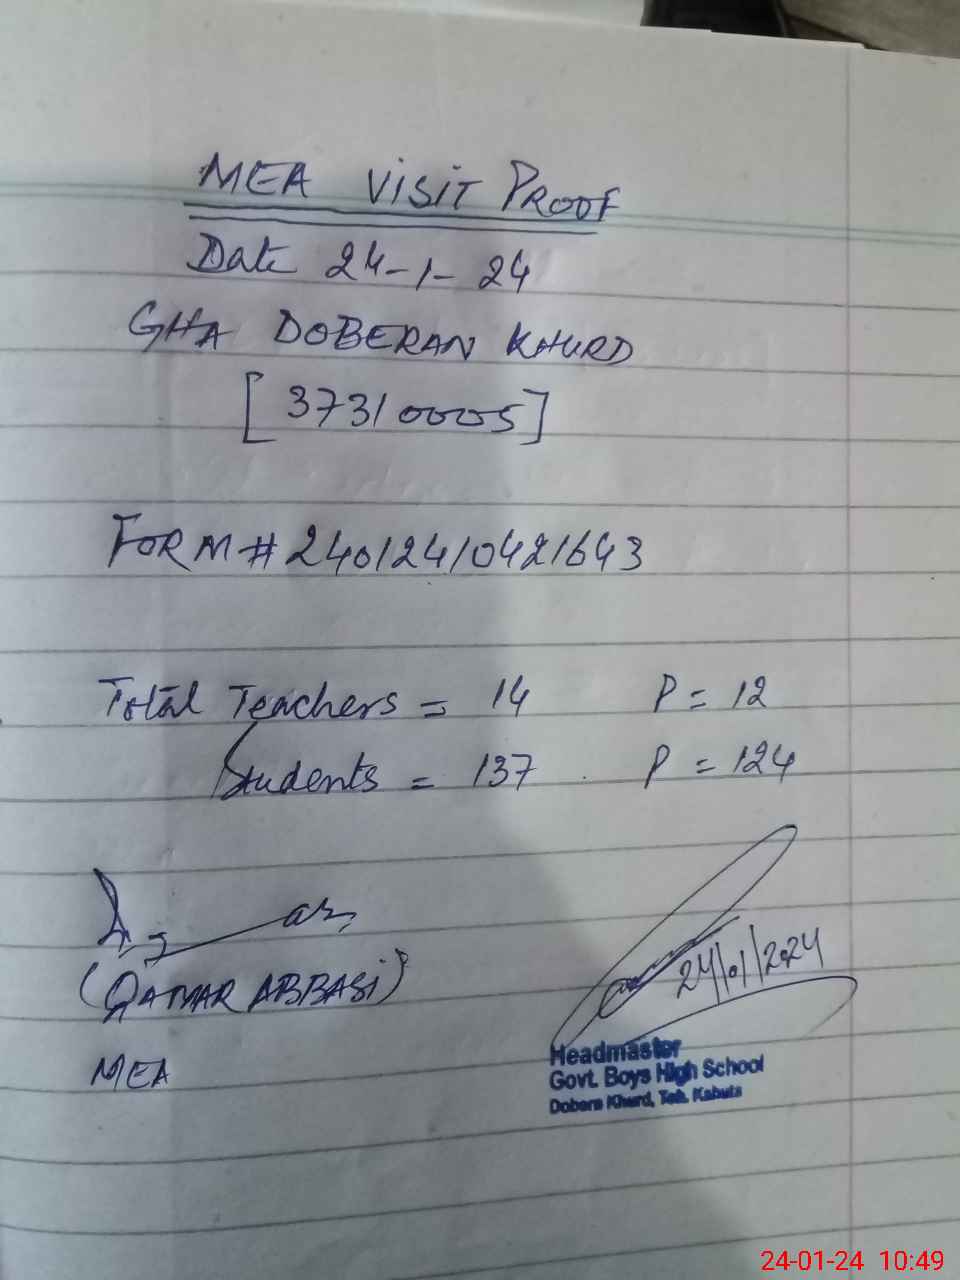 MEA VISIT PROOF
Date 24-1-24
GHA DOBERAN KHURD
[37310005]
FORM# 24012410421643
Total Teachers = 14 P = 12
Students = 137 P = 124
(QAMAR ABBASI)
MEA
24/01/2024
Headmaster
Govt. Boys High School
Dobera Khurd, Teh. Kahuta
24-01-24 10:49